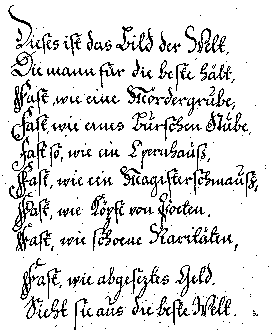 Dieses ist das Bild der Welt,
Die mann für die beste hält,
Fast, wie eine Mördergrube,
Fast, wie eines Burschen Stube,
Fast so, wie ein Opernhauß,
Fast, wie ein Magisterschmauß,
Fast, wie Köpfe von Poeten,
Fast, wie schoene Raritäten,
Fast, wie abgeseztes Geld
Sieht sie aus die beste Welt.